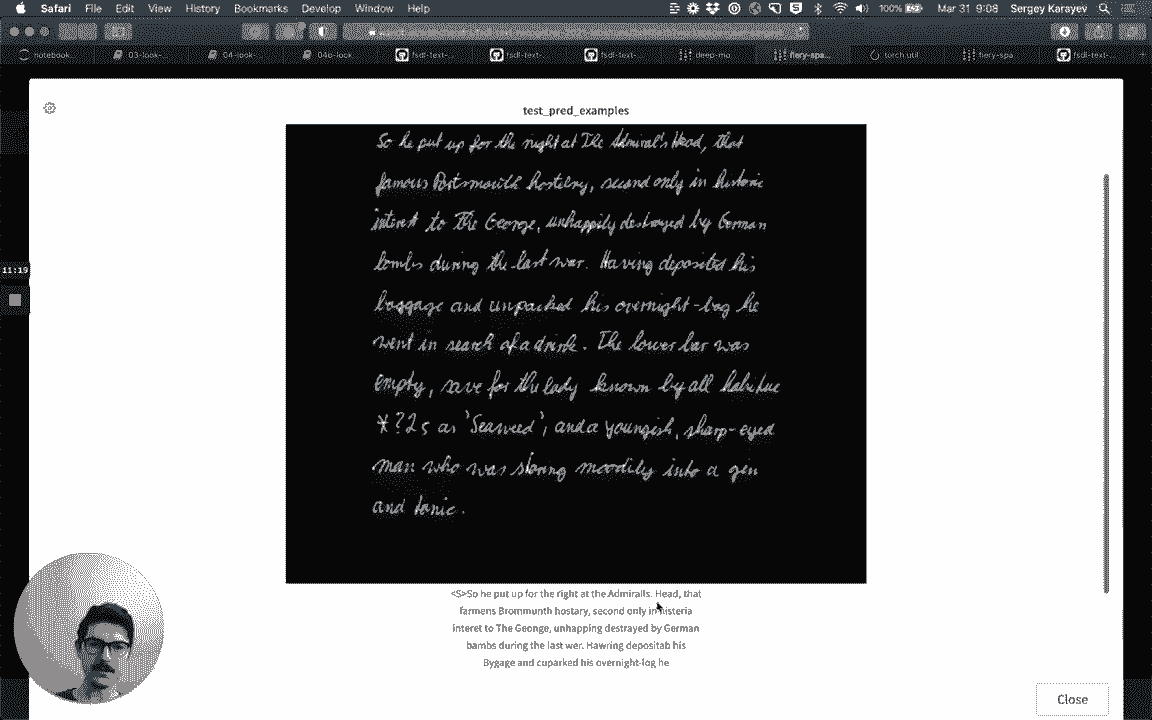 Safari File Edit View History Bookmarks Develop Window Help 100% Mar 31 9:08 Sergey Karayev
notebook... 03-look-... 04-look-... 04b-look fsdl-text-... fsdl-text-... fsdl-text-... deep-mo fiery-spa... torch.util fiery-spa fsdl-text-...
test_pred_examples
So he put up for the night at The Admiral's Head, that
famous Portsmouth hostelry, second only in historic
interest to The George, unhappily destroyed by German
bombs during the last war. Having deposited his
baggage and unpacked his overnight-bag he
went in search of a drink. The lower bar was
empty, save for the lady known by all habitue
*?2s as 'Seaweed', and a youngish, sharp-eyed
man who was staring moodily into a gin
and tonic.
11:19
<S>So he put up for the right at the Admiralls. Head, that
farmens Brommunth hostary, second only in histeria
interet to The Geonge, unhapping destrayed by German
bambs during the last wer. Hawring depositab his
Bygage and cuparked his overnight-log he
Close